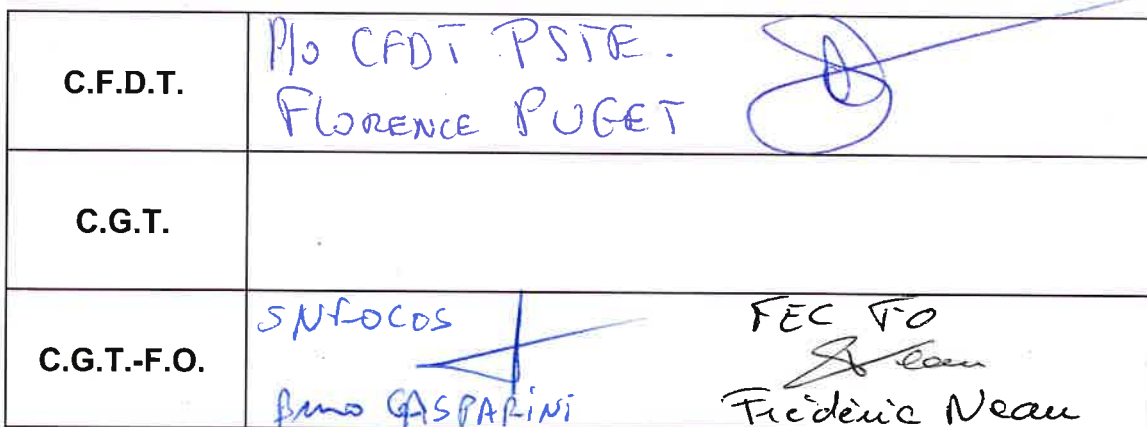 C.F.D.T.
P/o CFDT PSTE.
FLORENCE PUGET
C.G.T.
C.G.T.-F.O.
SNFOCOS
Bruno GASPARINI
FEC FO
Neau
Frédéric Neau